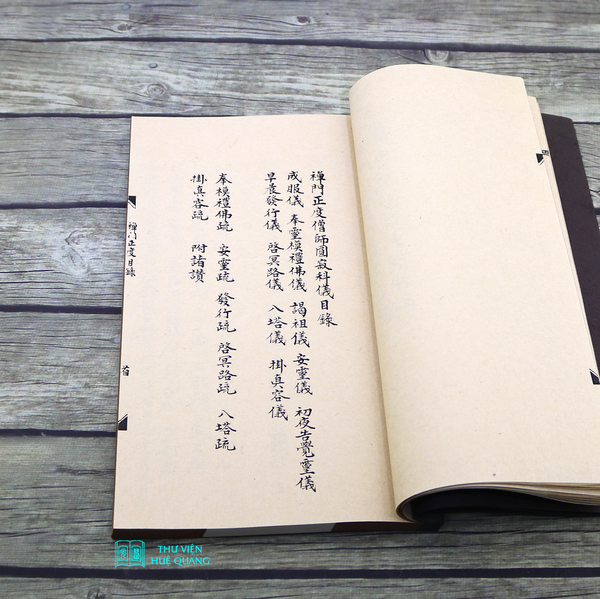 禪門正度僧師圓寂科儀目錄
成服儀 奉靈模禮佛儀 謁祖儀 安靈儀 初夜告覺靈儀
早晨發行儀 啓冥路儀 入塔儀 掛真容儀
奉模禮佛疏 安靈疏 發行疏 啓冥路疏 入塔疏
掛真容疏 附諸讚
禪門正度目錄
首
THƯ VIỆN
HUỆ QUANG